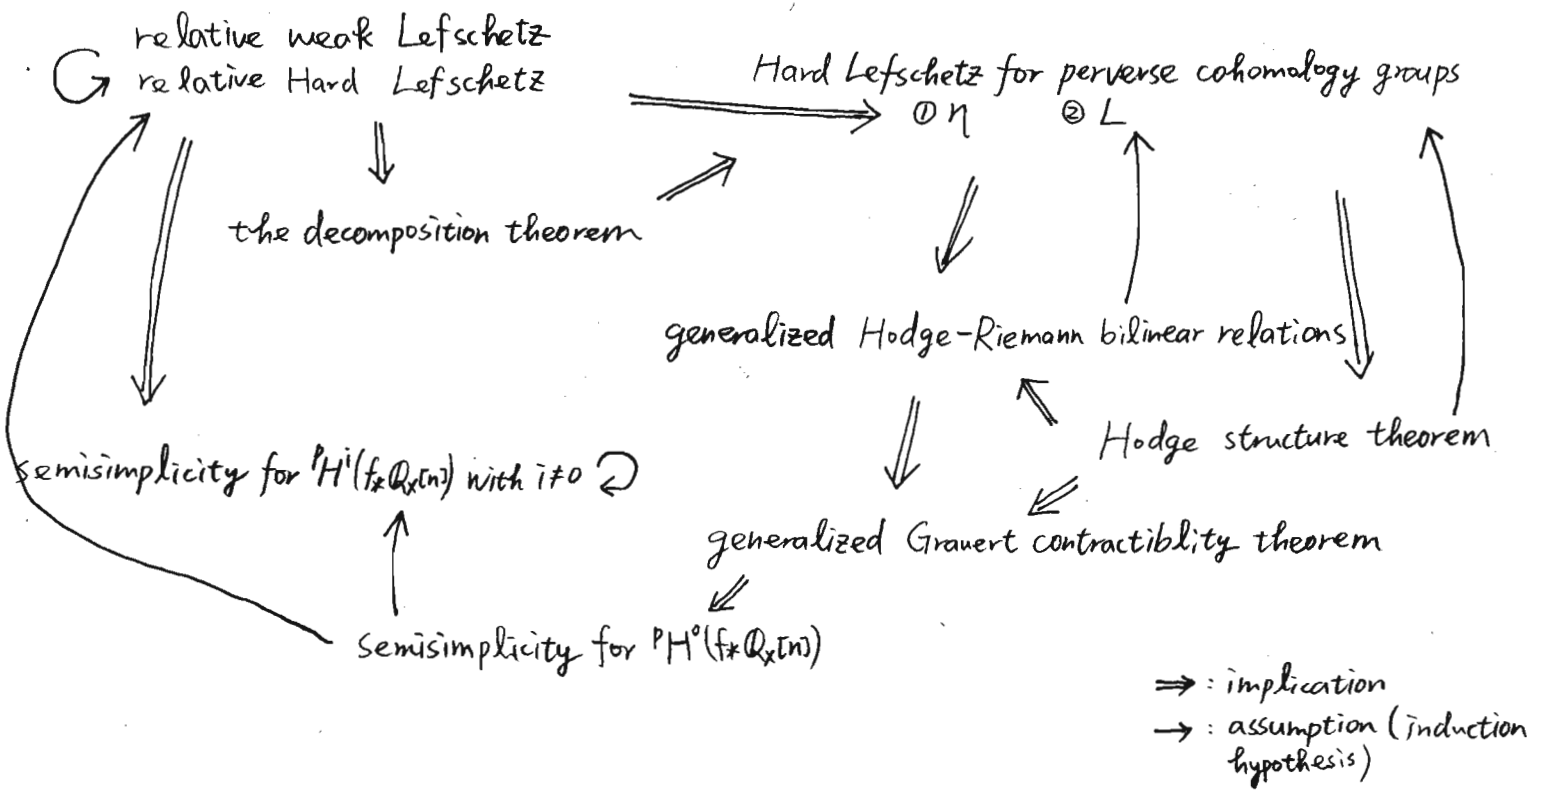 relative weak Lefschetz
relative Hard Lefschetz
Hard Lefschetz for perverse cohomology groups
① η ② L
the decomposition theorem
generalized Hodge-Riemann bilinear relations
Hodge structure theorem
semisimplicity for ᵖHⁱ(f⁎ℚₓ[n]) with i≠0
generalized Grauert contractiblity theorem
semisimplicity for ᵖH⁰(f⁎ℚₓ[n])
⇒ : implication
→ : assumption (induction
hypothesis)